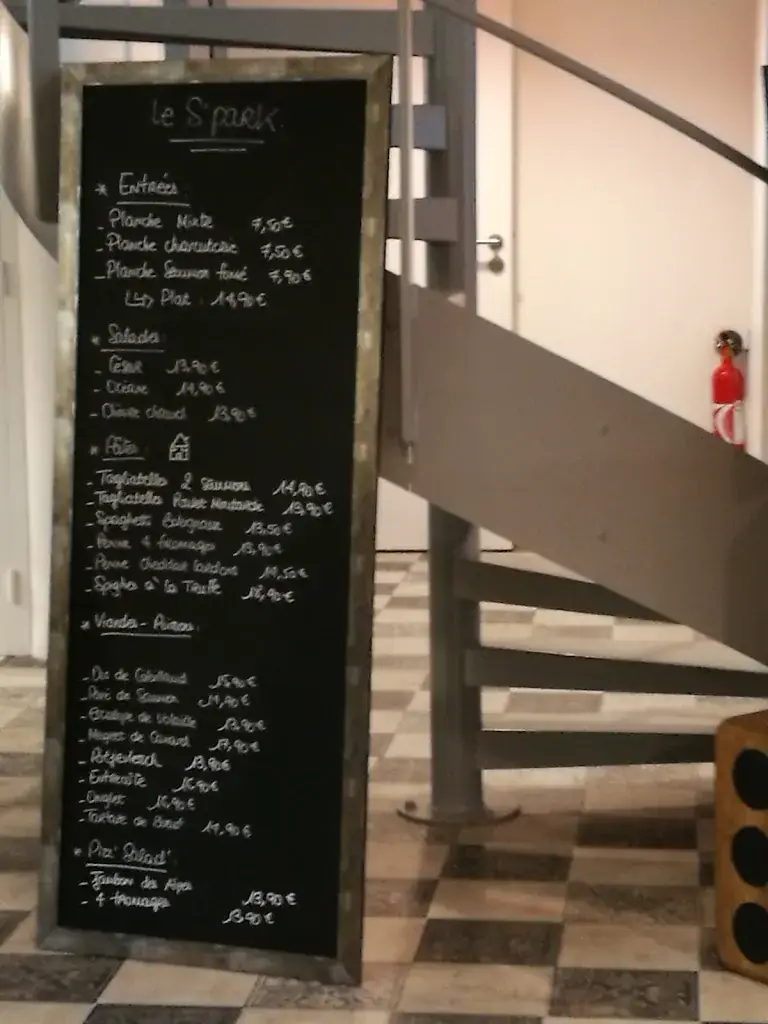 Le S'park
* Entrées :
- Planche Mixte 7,50€
- Planche charcuterie 7,50€
- Planche Saumon fumé 7,90€
Plat : 14,90€
* Salades :
- César 13,90€
- Océane 14,90€
- Chèvre chaud 13,90€
* Pâtes :
- Tagliatelle 2 saumons 14,90€
- Tagliatelle Poulet Moutarde 13,90€
- Spaghetti Bolognaise 13,50€
- Penne 4 fromages 13,90€
- Penne cheddar lardons 14,50€
- Spaghe à la Truffe 18,90€
* Viandes - Poisson :
- Dos de Cabillaud 15,90€
- Pavé de Saumon 14,90€
- Escalope de Volaille 13,90€
- Magret de Canard 17,90€
- Potjevleesch 13,90€
- Entrecôte 16,90€
- Onglet 16,90€
- Tartare de Boeuf 14,90€
* Piz' Salad' :
- Jambon des Alpes 13,90€
- 4 fromages 13,90€